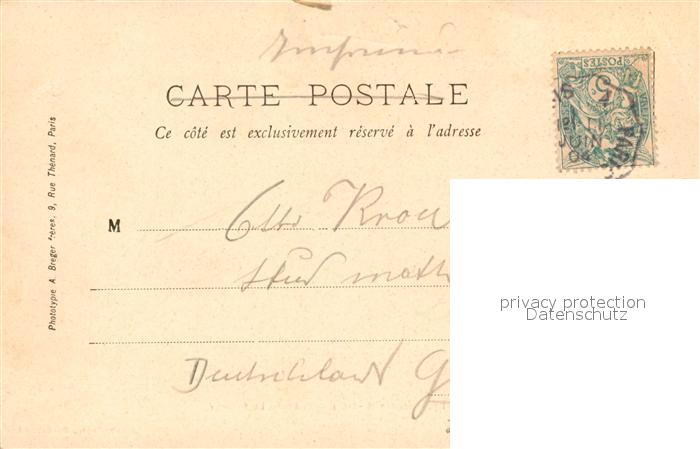 Imprimé
CARTE POSTALE
Ce côté est exclusivement réservé à l'adresse
POSTES
M Otto
stud math
Deutschland G
Phototypie A. Breger frères, 9, Rue Thénard, Paris
privacy protection
Datenschutz